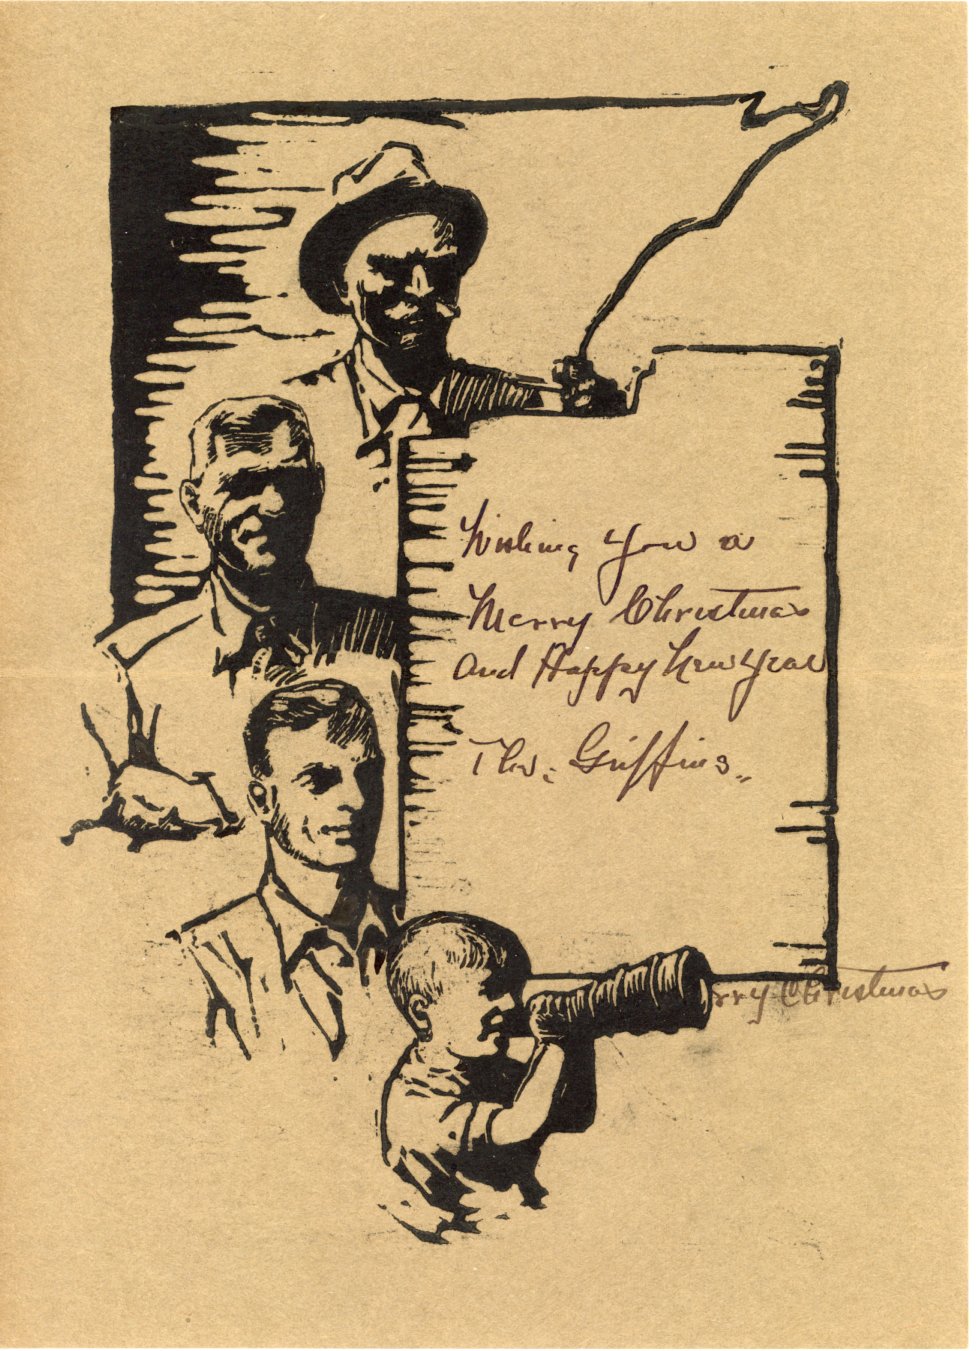 Wishing You a
Merry Christmas
and Happy New Year
The Griffins
rry Christmas